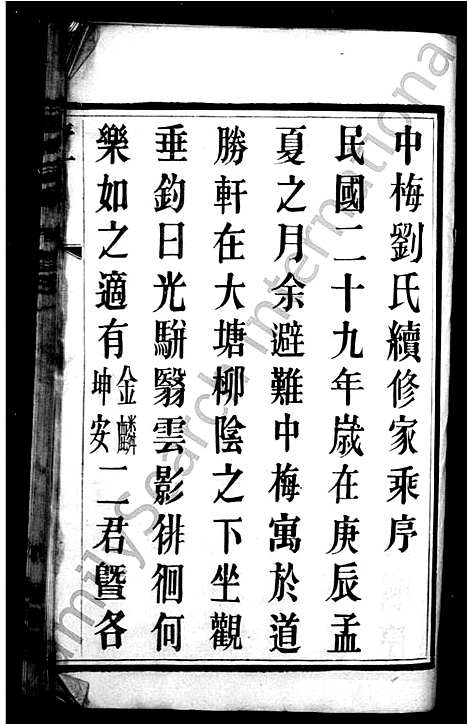 中梅劉氏續修家乘序
民國二十九年歲在庚辰孟
夏之月余避難中梅寓於道
勝軒在大塘柳陰之下坐觀
垂釣日光駢翳雲影徘徊何
樂如之適有金麟坤安二君暨各
FamilySearch International